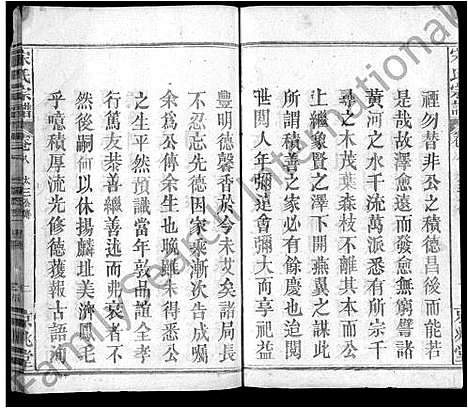 禋勿替非公之積德昌後而能若
是哉故澤愈遠而發愈無窮譬諸
黃河之水千流萬派悉有所宗千
尋之木茂葉森枝不離其本公之
上繼象賢之澤下開燕翼之謀其
所謂積善之家必有餘慶也迨閱
世閱人年彌邁會彌大而享祀益
豐明德馨香於今未艾矣諸局長
不忍忘先德因家乘漸次告成囑
余爲公傳余生也晚雖未得悉公
之生平然預識當年敦品誼全孝
行篤友恭善繼善述而弗衰也不
然後嗣何以休揚麟趾美濟鳳毛
乎噫積厚流光修德獲報古語洵
宋氏宗譜
宋氏宗譜
京兆堂
京兆堂
FamilySearch International